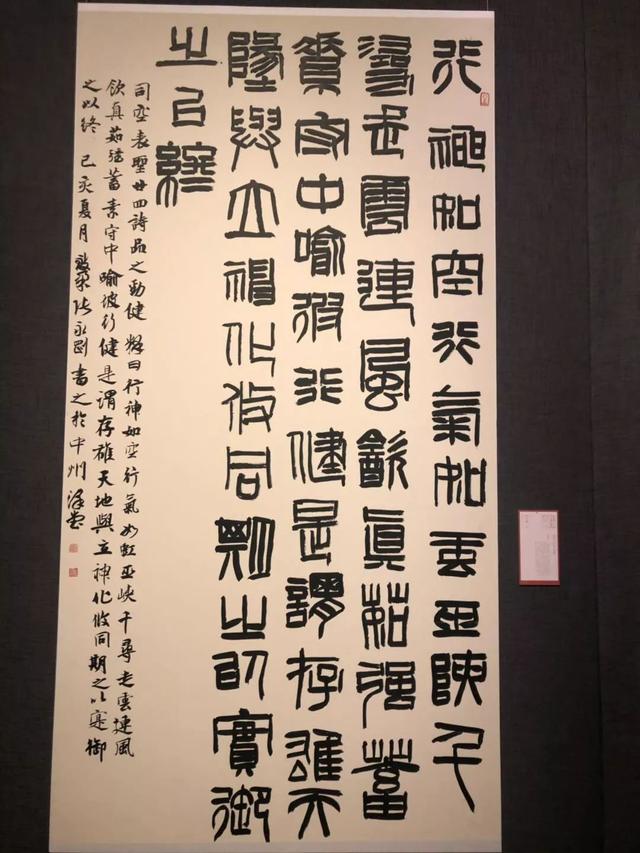 行神如空行氣如虹巫峽千
尋走雲連風飲真茹強蓄
素守中喻彼行健是謂存雄天
墬與立神化攸同期之以實御
之以終
司空表聖廿四詩品之勁健 釋曰行神如空行氣如虹巫峽千尋走雲連風
飲真茹強蓄素守中喻彼行健是謂存雄天地與立神化攸同期之以寔御
之以終 己亥夏月 張永剛書之於中州